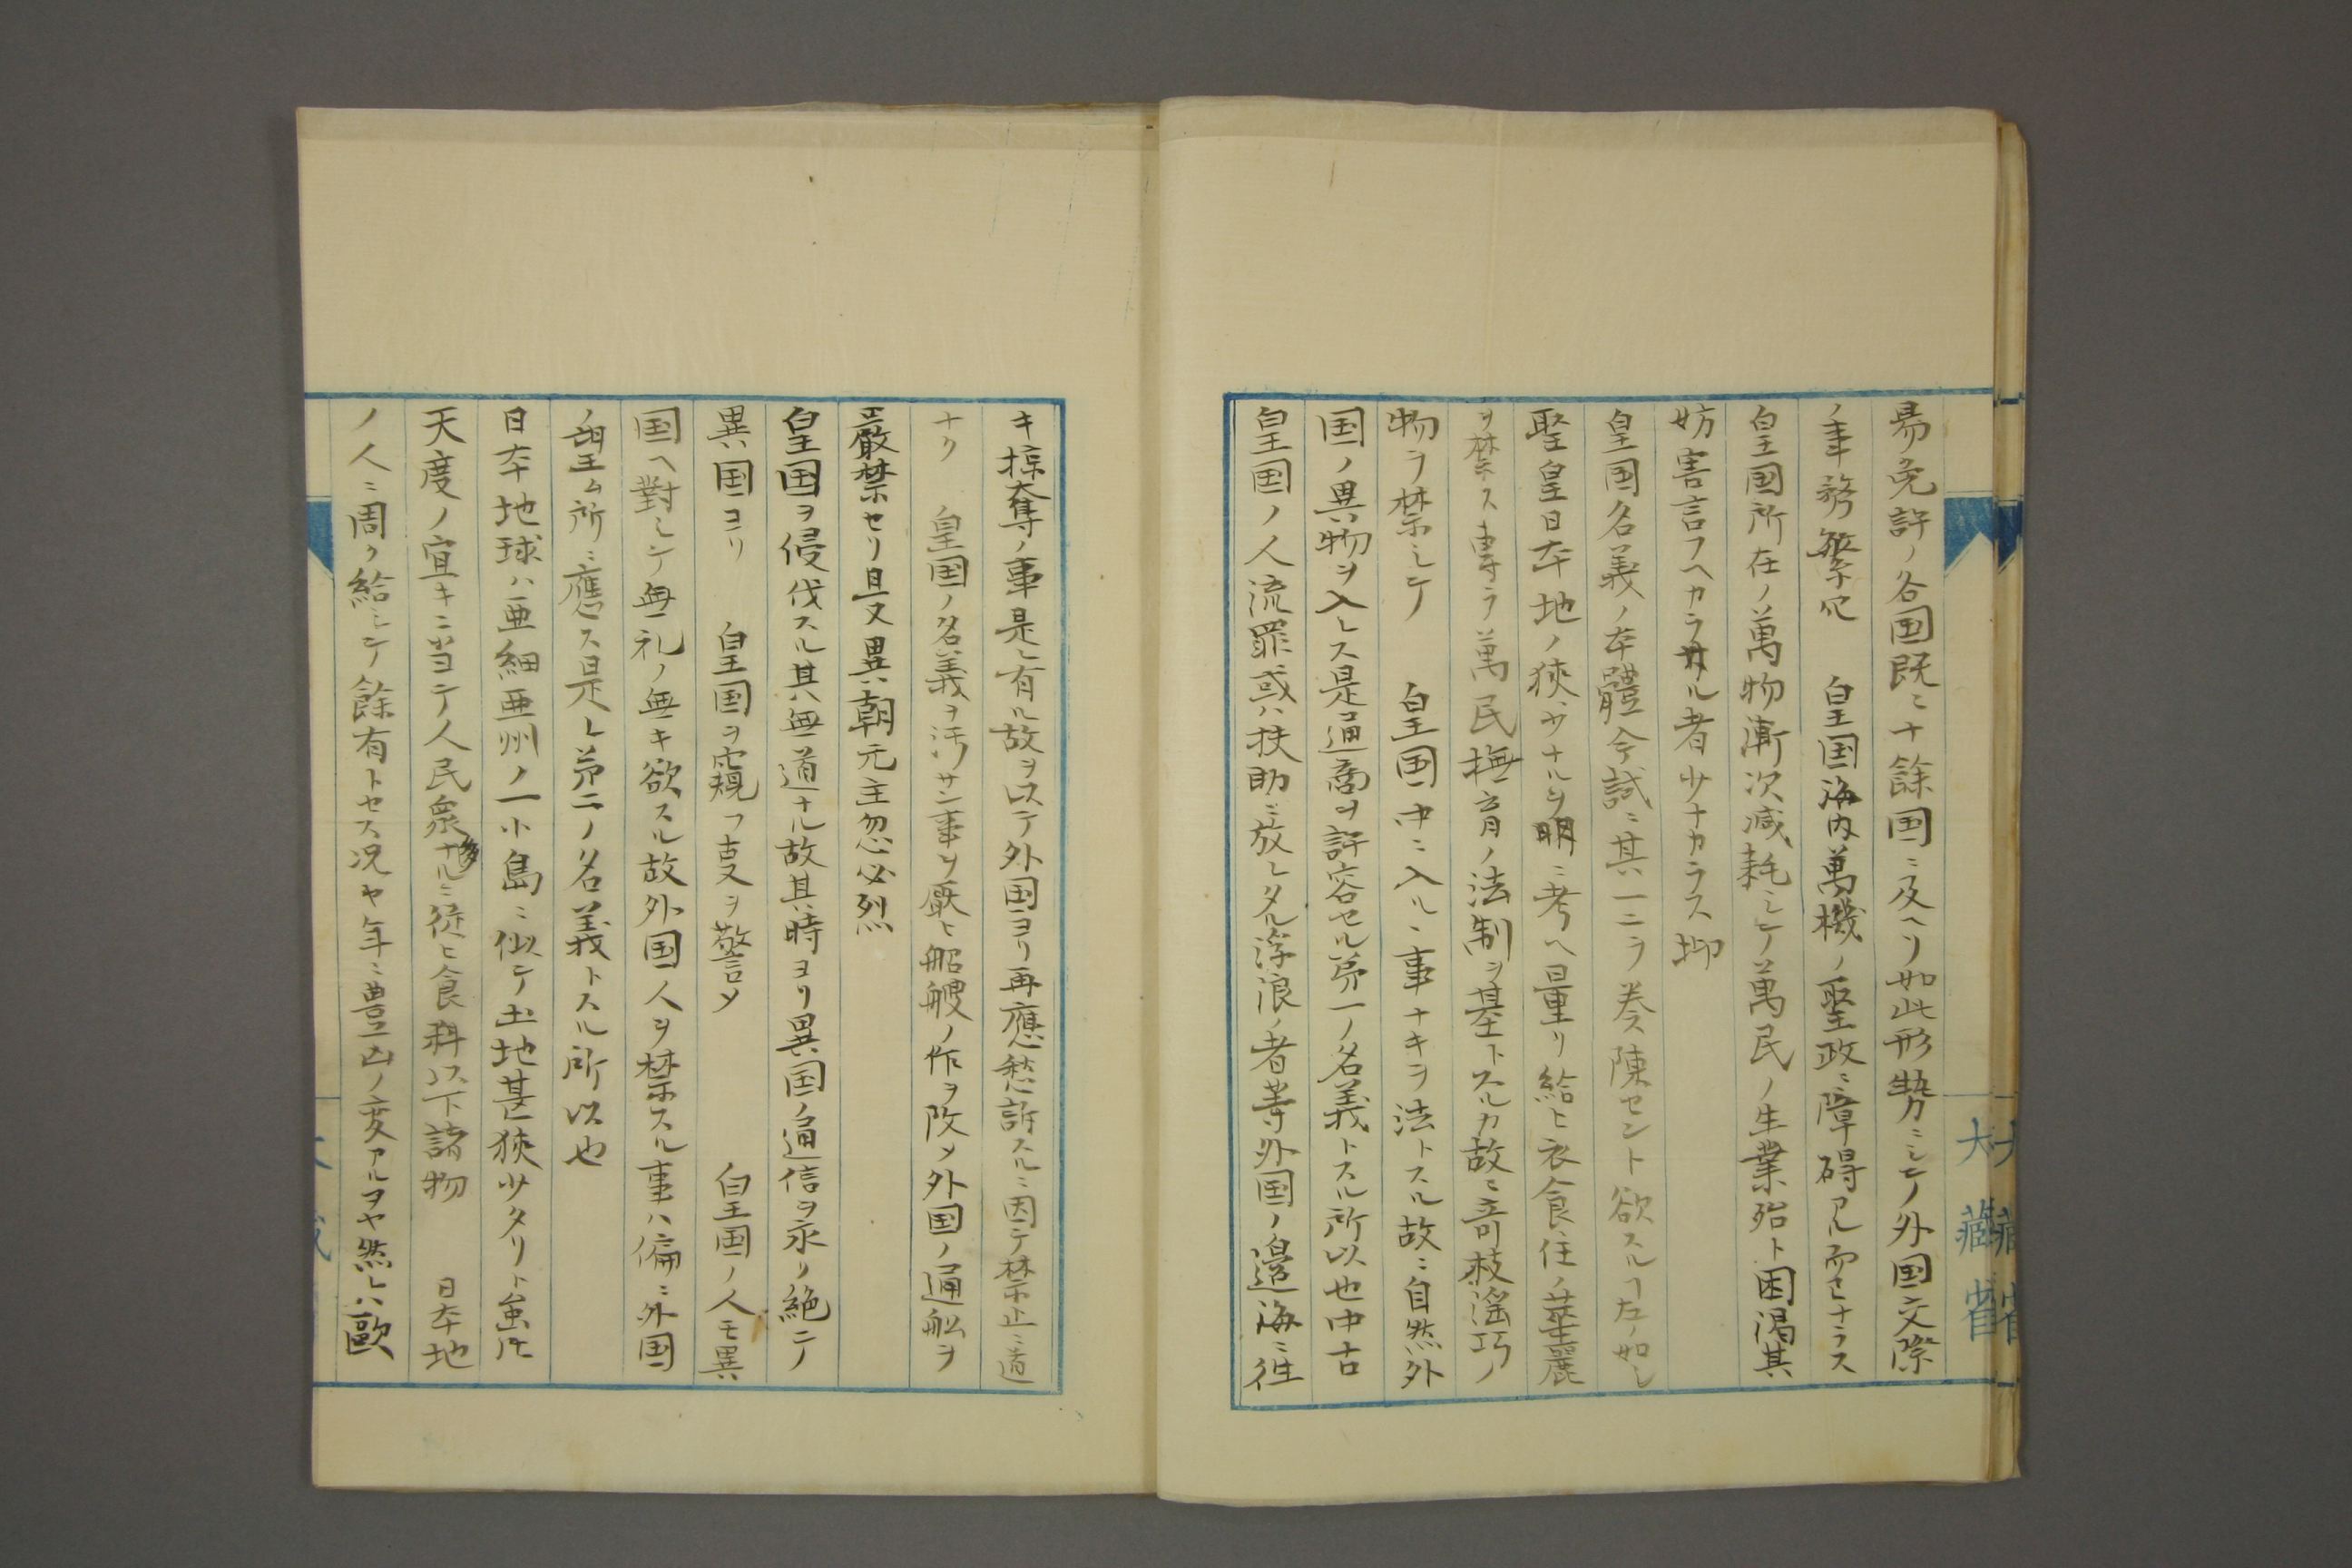 易免許ノ各国既ニ十餘国ニ及ヘリ如此形勢ニシテ外国交際
ノ事務繁冗　皇国海内萬機ノ聖政ニ障碍アル而巳ナラス
皇国所在ノ萬物漸次減耗シテ萬民ノ生業殆ト困渇其
妨害言フヘカラサル者少ナカラス抑
皇国名義ノ本體今試ニ其一二ヲ奏陳セント欲スルヿ左ノ如シ
聖皇日本地ノ狹少ナルヲ明ニ考ヘ量リ給ヒ衣食住ノ華麗
ヲ禁ス專ラ萬民撫育ノ法制ヲ基トスルカ故ニ奇技淫巧ノ
物ヲ禁シテ　皇国中ニ入ルヽ事ナキヲ法トスル故ニ自然外
国ノ異物ヲ入レス是通商ヲ許容セル第一ノ名義トスル所以也中古
皇国ノ人流罪或ハ扶助ニ放レタル浮浪ノ者等外国ノ邊海ニ徃
キ掠奪ノ事是レ有ル故ヲ以テ外国ヨリ再應愁訴スルニ因テ禁止ニ道
ナク　皇国ノ名義ヲ汚サン事ヲ厭ヒ船艘ノ作ヲ改メ外国ノ通船ヲ
嚴禁セリ且又異朝元主忽必烈
皇国ヲ侵伐スル其無道ナル故其時ヨリ異国ノ通信ヲ永ク絶ニテ
異国ヨリ　皇国ヲ窺フ支ヲ警メ　皇国ノ人モ異
国ヘ對シテ無礼ノ無キ欲スル故外国人ヲ禁スル事ハ偏ニ外国
ノ望ム所ニ應ス是レ第二ノ名義トスル所以也
日本地球ハ亜細亜州ノ一小島ニ似テ土地甚狹少タリト虽𪜈
天度ノ宜キニ当ヨテ人民衆多ナルニ従ヒ食料以下諸物　日本地
ノ人ニ周ク給シテ餘有トセス况ヤ年ニ豊凶ノ変アルヲヤ然レハ歐
大藏省